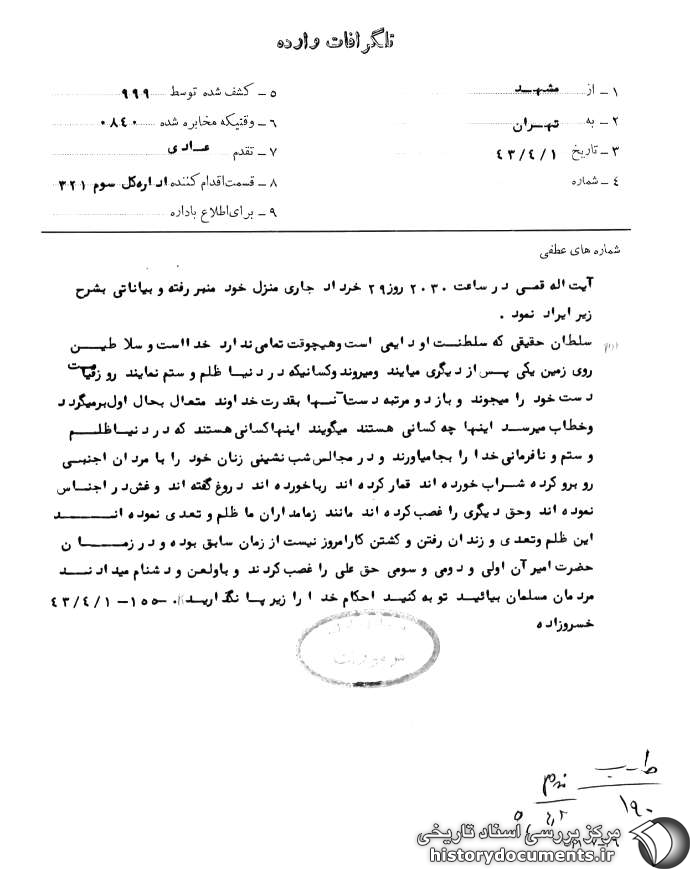 تلگرافات وارده
۱ – از مشهد
۲ – به تهران
۳ – تاریخ ۴۳/۴/۱
۴ – شماره
۵ – کشف شده توسط ۹۹۹
۶ – وقتیکه مخابره شده ۰۸۴۰
۷ – تقدم عادی
۸ – قسمت اقدام کننده اداره کل سوم ۳۲۱
۹ – برای اطلاع باداره
شماره های عطفی
آیت اله قمی در ساعت ۲۰۳۰ روز ۲۹ خرداد جاری منزل خود منبر رفته و بیاناتی بشرح
زیر ایراد نمود .
سلطان حقیقی که سلطنت او دایمی است وهیچوقت تمامی ندارد خدا است و سلاطین
روی زمین یکی پس از دیگری میایند ومیروند وکسانیکه در دنیا ظلم و ستم نمایند روز قیامت
دست خود را میجوند و باز دو مرتبه دست آنها بقدرت خداوند متعال بحال اول برمیگردد
وخطاب میرسد اینها چه کسانی هستند میگویند اینها کسانی هستند که در دنیا ظلم
و ستم و نافرمانی خدا را بجامیاورند و در مجالس شب نشینی زنان خود را با مردان اجنبی
روبرو کرده شراب خورده اند قمار کرده اند رباخورده اند دروغ گفته اند و غش در اجناس
نموده اند وحق دیگری را غصب کرده اند مانند زمامداران ما ظلم و تعدی نموده اند
این ظلم وتعدی و زندان رفتن و کشتن کار امروز نیست از زمان سابق بوده و در زمان
حضرت امیر آن اولی و دومی و سومی حق علی را غصب کردند و باولعن و دشنام میدادند
مردمان مسلمان بیائید توبه کنید احکام خدا را زیر پا نگذارید . –۱۵۵–۴۳/۴/۱
خسروزاده
۱۹۰
مرکز بررسی اسناد تاریخی
historydocuments.ir